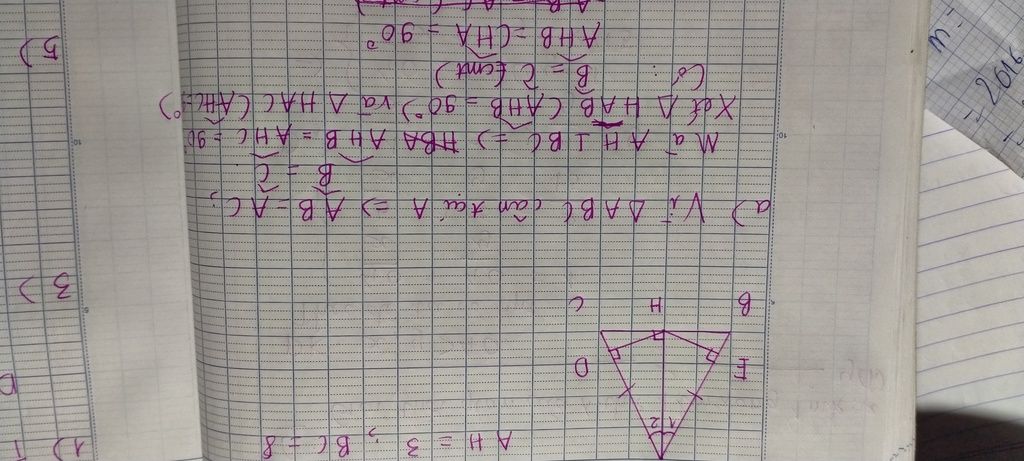 AH = 3 ; BC = 8
1 2
E D
B H C
a) Vì ΔABC cân tại A => AB = AC ;
B = C
Mà AH ⊥ BC => HBA AHB = AHC = 90
Xét Δ HAB (AHB = 90°) và Δ HAC (AHC = °)
Có : B = C (cmt)
AHB = CHA = 90°
1)
3)
5)
2016